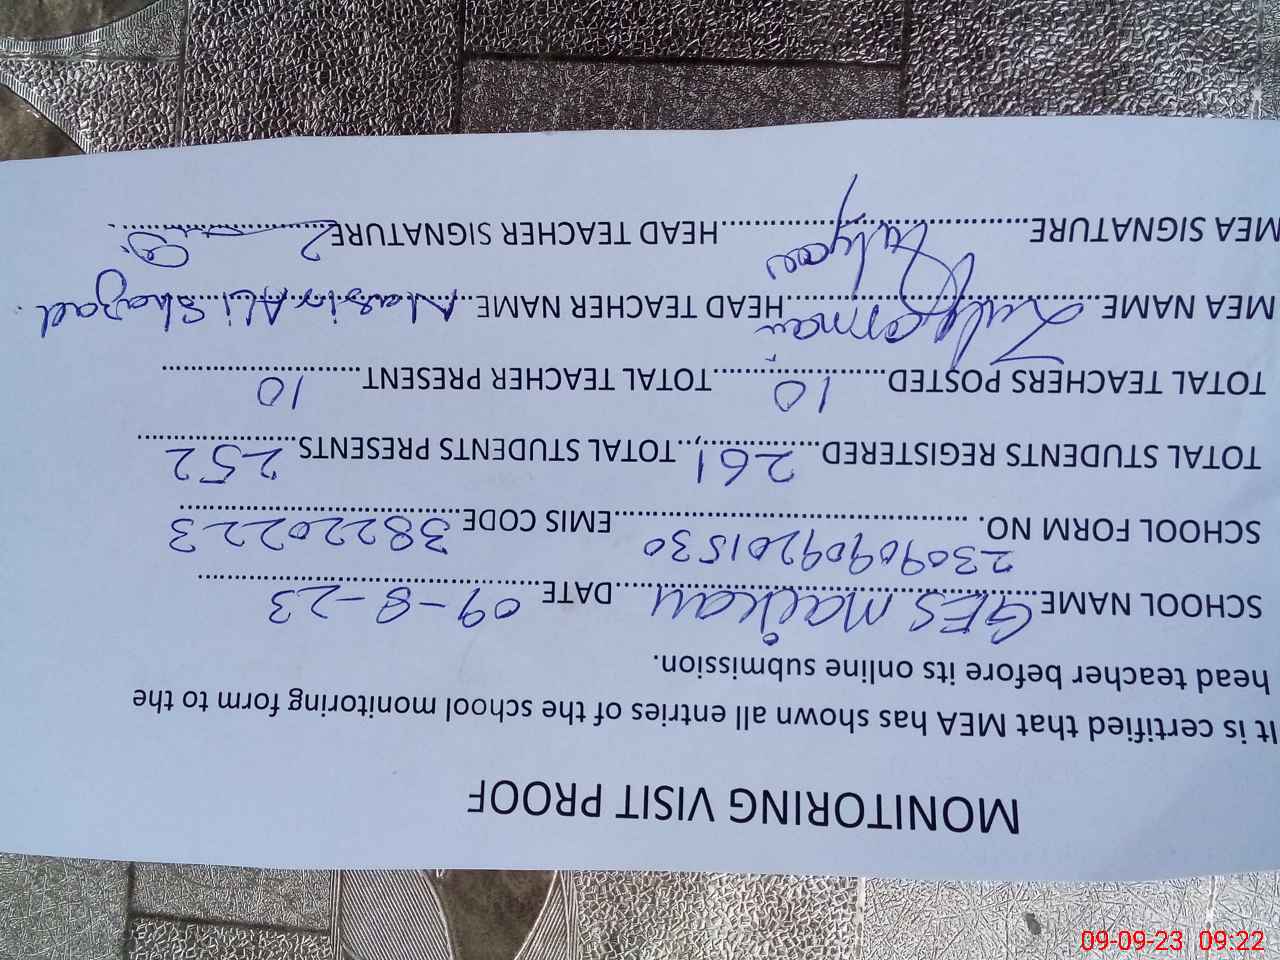 MONITORING VISIT PROOF
It is certified that MEA has shown all entries of the school monitoring form to the
head teacher before its online submission.
SCHOOL NAME GES Maikan DATE 09-8-23
SCHOOL FORM NO. 23090909201530 EMIS CODE 38220223
TOTAL STUDENTS REGISTERED 261 TOTAL STUDENTS PRESENTS 252
TOTAL TEACHERS POSTED 10 TOTAL TEACHER PRESENT 10
MEA NAME HEAD TEACHER NAME Nasir Ali Shazad
MEA SIGNATURE HEAD TEACHER SIGNATURE
09-09-23 09:22